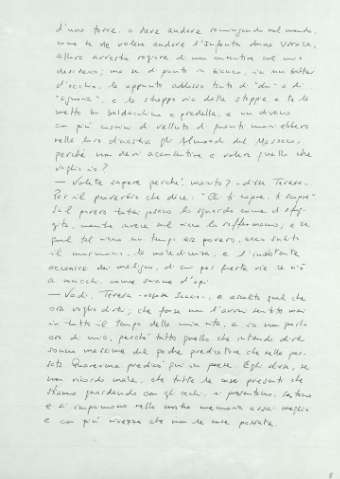 d'una torre, o deve andare ramingando nel mondo,
come te ne voleva andare l'Infanta donna Urraca,
allora avresti ragione di non consentire col mio
desiderio; ma se di punto in bianco, in un batter
d'occhio, le appunto addosso tanto di "don" e di
"signoria", e la strappo via dalle stoppie e te la
metto in baldacchino e predella, e un divano
con più cuscini di velluto di quanti mori ebbero
nella loro dinastia gli Almoadi del Marocco,
perché non devi acconsentire e volere quello che
voglio io?
— Volete sapere perché, marito? - disse Teresa.
Per il proverbio che dice: "Chi ti copre, ti scopre"
Sul povero tutti passano lo sguardo come di sfug-
gita, mentre invece sul ricco lo soffermano, e se
quel tal ricco un tempo era povero, ecco subito
il mormorare, la maldicenza, e l'insistente
accanirsi dei maligni, di cui per queste vie ce n'è
a mucchi, come sciami d'api.
— Vedi, Teresa - rispose Sancio -, e ascolta quel che
ora voglio dire; che forse non l'avrai sentito mai
in tutto il tempo della mia vita, e io non parlo
ora di mio, perché tutto quello che intendo dire
sono massime del padre predicatore che nella pas-
sata Quaresima predicò qui in paese. Egli disse, se
non ricordo male, che tutte le cose presenti che
stiamo guardando con gli occhi, si presentano, stanno
e si imprimono nella nostra memoria assai meglio
e con più vivezza che non le cose passate.
8